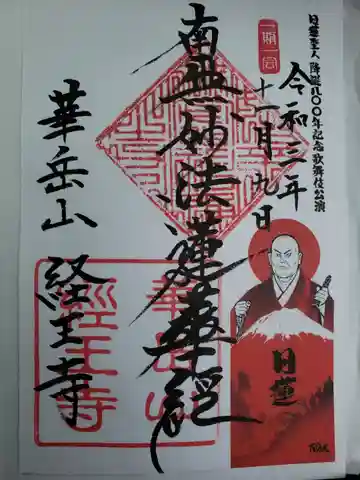 日蓮聖人降誕八〇〇年記念歌舞伎公演
一期一会
令和三年
十一月九日
南無妙法蓮華経
華岳山
経王寺
華岳山
経王寺
日蓮